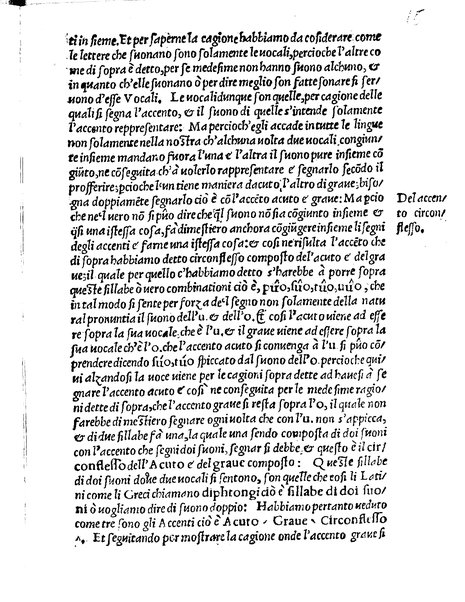 15
ti insieme. Et per saperne la cagione habbiamo da cōsiderare come
le lettere che suonano sono solamente le uocali, percioche l'altre co
me di sopra è detto, per se medesime non hanno suono alchuno, &
in quanto ch'elle suonano ò per dire meglio son fatte sonare si ser-
uono d'esse Vocali. Le uocali dunque son quelle, per cagione delle
quali si segna l'accento, & il suono di quelle s'intende solamente
l'accento rappresentare: Ma percioch'egli accade in tutte le lingue
non solamente nella nostra ch'alchuna uolta due uocali, congiun-
te insieme mandano fuora l'una e l'altra il suono pure insieme cō
giūto, ne cōseguita ch'à uolerlo rappresentare e segnarlo secōdo il
profferire; pcioche l'un tiene maniera d'acuto, l'altro di graue; biso
gna doppiamēte segnarlo ciò è cō l'accēto acuto e graue: Ma pcio
che nel uero nō si puo dire che q̄l suono nō sia cōgiunto insieme &
q̄si una istessa cosa, fà dimestiero anchora cōgiūgere insieme li segni
degli accenti e farne una istessa cosa: & cosi ne risulta l'accēto che
di sopra habbiamo detto circonflesso composto del'acuto e del gra
ue; il quale per quello c'habbiamo detto s'harebbe à porre sopra
queste sillabe ò uero combinationi ciò è, pûo, sûo, tûo, uûo, che
in tal modo si sente per forza de'l segno non solamente della natu
ral pronuntia il suono dell'u. & dell'o. E cosi l'acuto viene ad esse
re sopra la sua uocale, che è l'u, & il graue uiene ad essere sopra la
sua uocale ch'è l'o. che l'accento acuto si conuenga à l'u si può cō
prendere dicendo sûo, tûo spiccato dal suono dell'o. percioche qui
ui alzandosi la uoce uiene per le cagioni sopra dette ad hauersi à se
gnare l'accento acuto e cosi ne conseguita per le medesime ragio
ni dette di sopra, che l'accento graue si resta sopra l'o, il quale non
farebbe di mestiero segnare ogni uolta che con l'u. non s'appicca,
& di due sillabe fà una, la quale una sendo composta di doi suoni
con l'accento che segni doi suoni, segnar si debbe, & questo è il cir
conflesso dell'Acuto e del graue composto: Queste sillabe
di doi suoni doue due uocali si sentono, son quelle che cosi li Lati-
ni come li Greci chiamano diphtongi ciò è sillabe di doi suo/
ni ò uogliamo dire di suono doppio: Habbiamo pertanto ueduto
come tre sono gli Accenti ciò è Acuto ´ Graue ` Circonflesso
^. Et seguitando per mostrare la cagione onde l'accento graue si
Del accen
to circon
flesso.